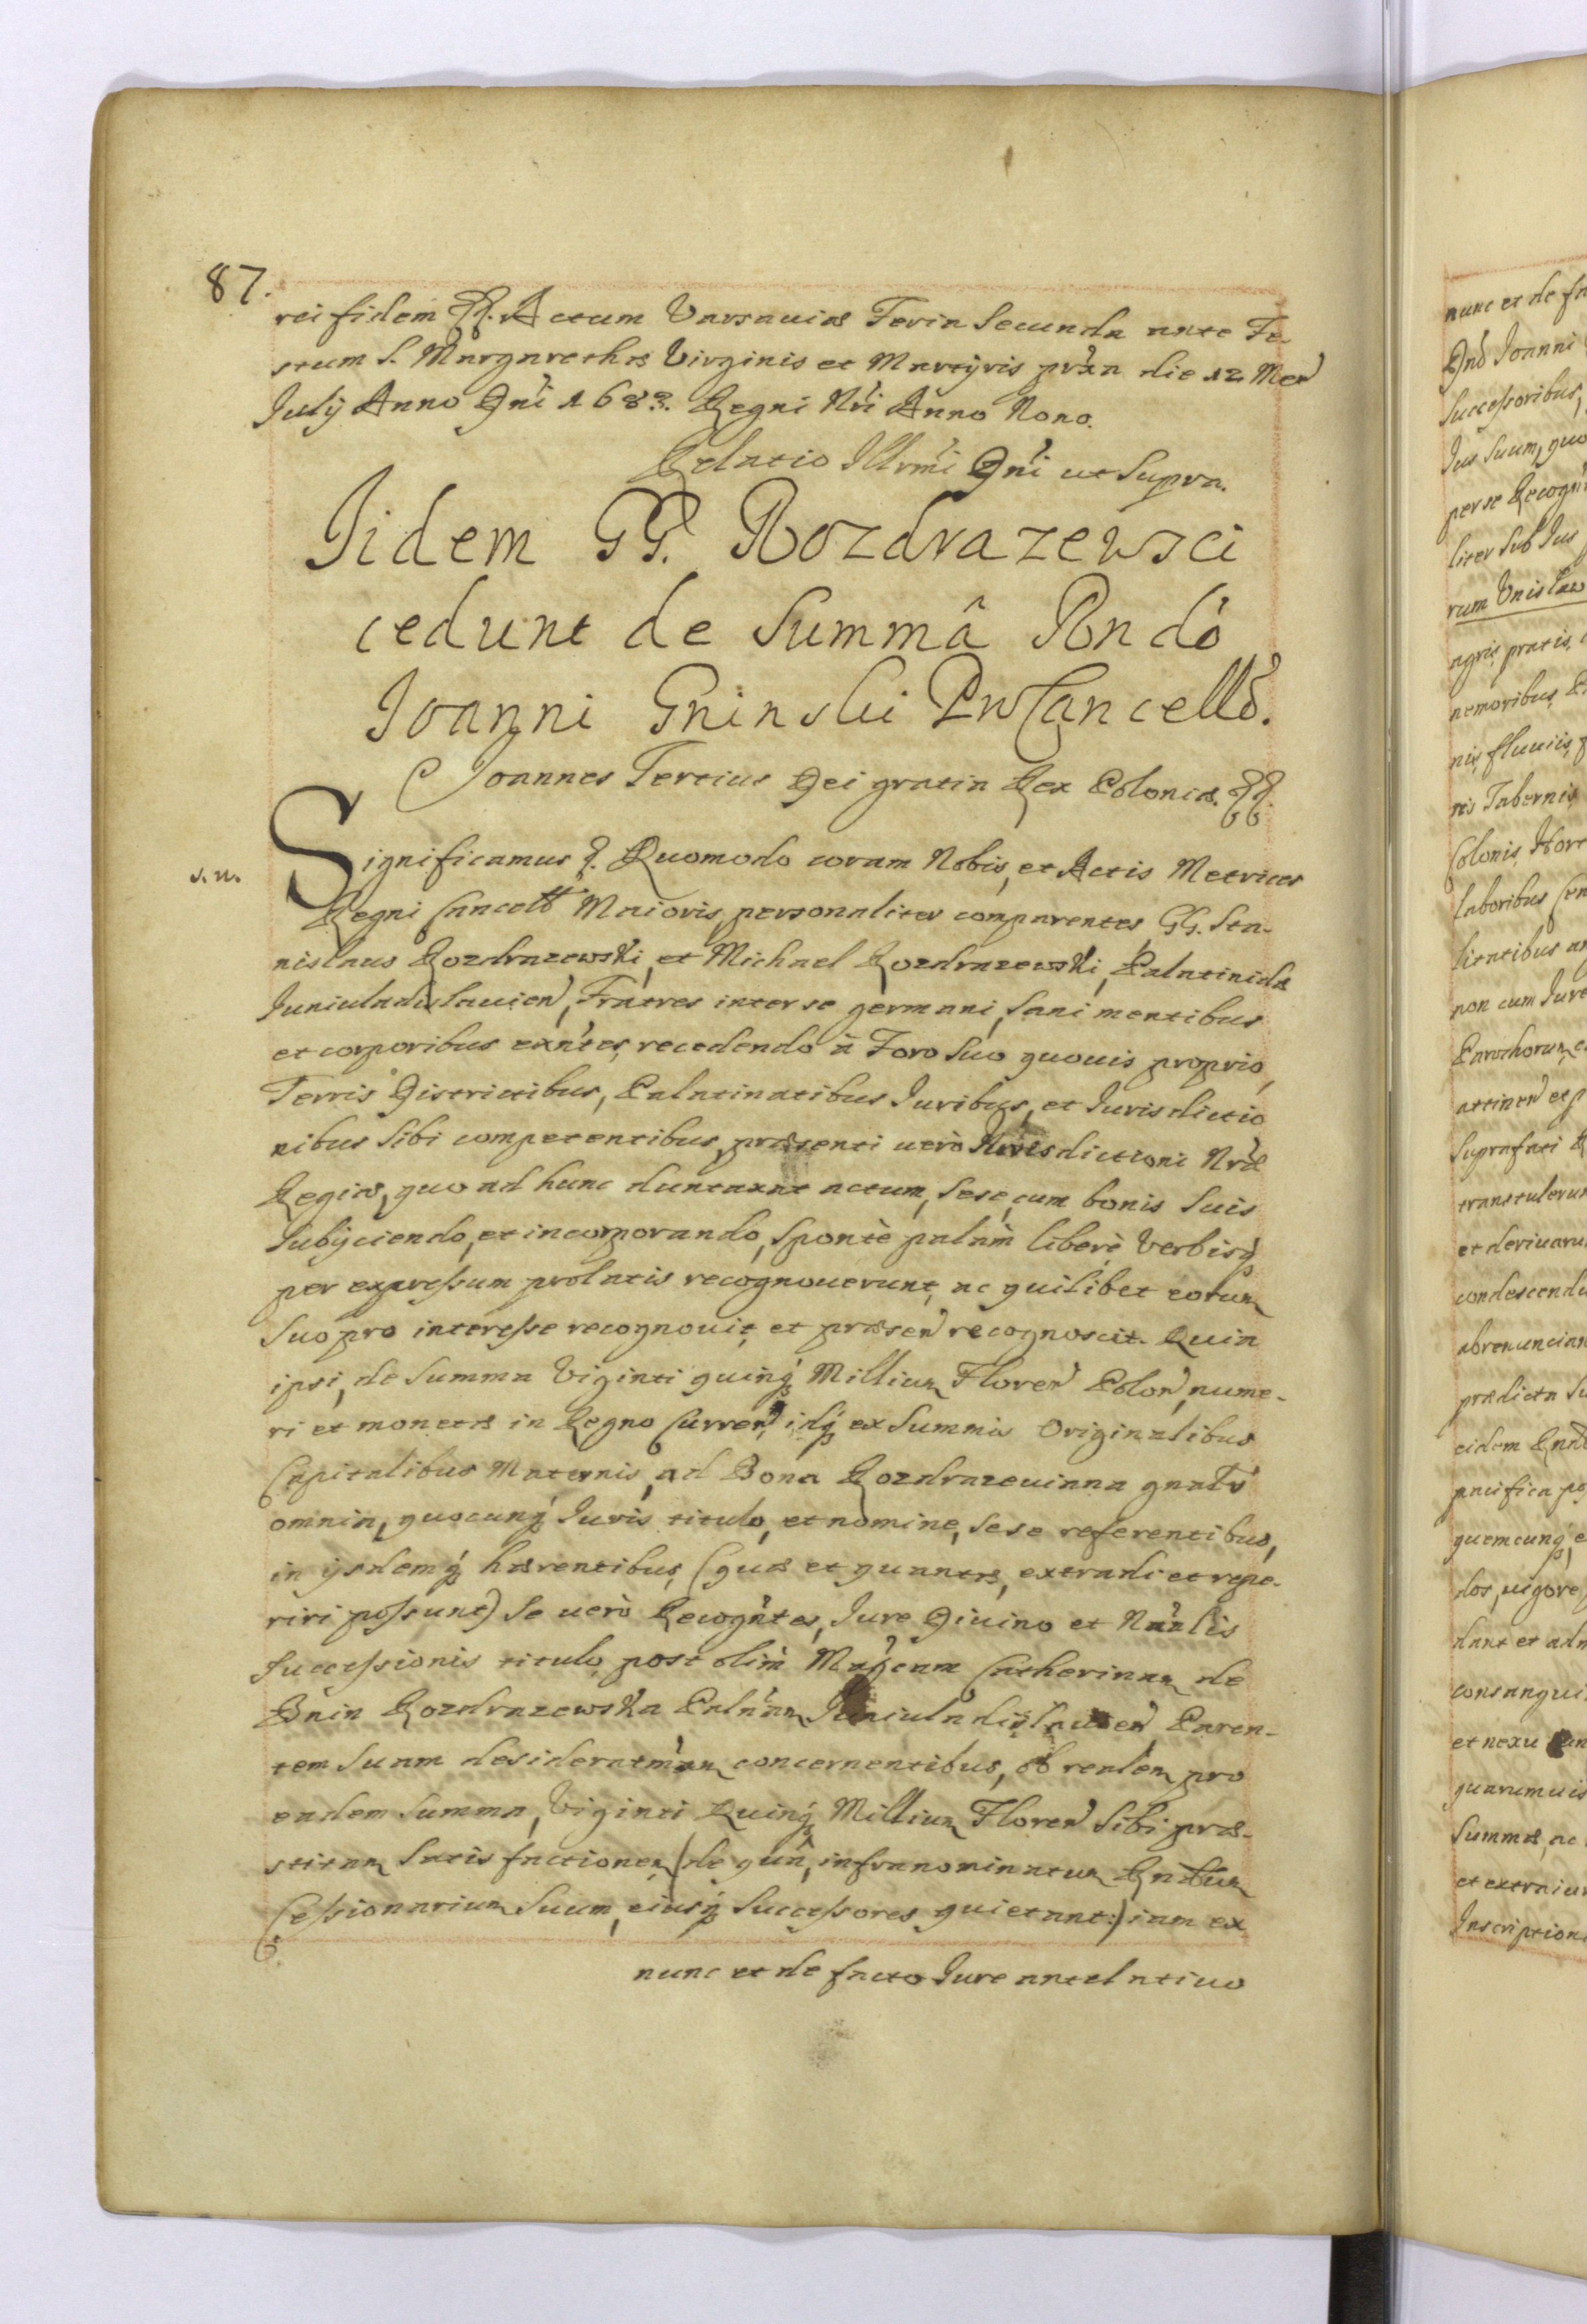 87.
rei fidem &&. Actum Varsaviæ Feria Secunda ante Fe-
stum S. Margarethæ Virginis et Martyris prxa die 12 Men
July Anno Dni 1683. Regni Nri Anno Nono.
Relatio Illrmi Dni ut Supra.
Iidem GG. Rozdrazewsci
cedunt de Summâ Rndo
Joanni Gninski ProCancello.
Joannes Tertius Dei gratia Rex Poloniæ. &&.
s. n.
Significamus &. Quomodo coram Nobis, et Actis Metrices
Regni Cancell Maioris, personaliter comparentes GG. Sta-
nislaus Rozdrazewski, et Michael Rozdrazewski, Palatinida
Juniuladislauien, Fratres inter se germani, Sani mentibus
et corporibus exntes, recedendo à Foro Suo quouis proprio,
Terris Districtibus, Palatinatibus Juribus, et Jurisdictio
nibus Sibi competentibus, præsenti uerò Jurisdictioni Nræ
Regiæ, quo ad hunc duntaxat actum, Sese, cum bonis Suis
Subijciendo, et incorporando, Spontè palàm liberè Verbisq
per expressum prolatis recognouerunt, ac quilibet eorum
Suo pro interesse recognouit, et præsen recognoscit. Quia
ipsi, de Summa Viginti quinq Millium Floren Polon, nume-
ri et monetæ in Regno Curren, idq ex Summis Originalibus
Capitalibus Maternis, ad Bona Rozdrazeuiana gnalr
omnia, quocunq Juris titulo, et nomine, Sese referentibus,
in ijsdemq hærentibus, (quæ et quantæ, extradi et repe-
riri possunt) Se uerò Recogntes, Jure Diuino et Nralis
Successionis titulo, post olim Magcam Catherinam de
Bnin Rozdrazewska Palnam Juniuladislauien Paren-
tem Suam desideratmam concernentibus, ob realem pro
eadem Summa, Viginti Quinq Millium Floren Sibi præ-
stitam Satisfactionem (de quâ, infranominatum Rndum
Cessionarium Suum, eiusq Successores quietant:) iam ex
nunc et de facto Jure antelatiuo
nunc et de fa
Dno Joanni
Successoribus,
Jus Suum, quo
per se Recogn
liter Sub Jus
rum Unislaw
agris pratis,
nemoribus,
nis, fluuiis,
ris Tabernis
Colonis, Hort
laboribus Cen
litatibus
non cum Jure
Parochorum,
attinen et p
Suprafati
transtulerun
et deriuaru
condescendu
abrenuncian
prædicta Su
eidem Rnd
pacifica po
quemcunq, e
dos, uigore
dant et adm
consangui
et nexu
quarumuis
Summæ, ac
et extraiu
Inscription